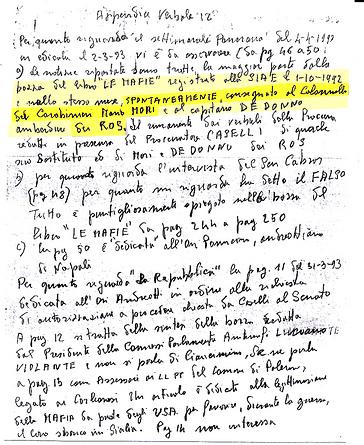 Appendice Verbale "12"
Per quanto riguarda il settimanale Panorama del 4-4-1993
in edicola il 2-3-93 vi è da osservare (da pg 46 a 50):
a) le notizie riportate sono tratte, la maggior parte dalla
bozza del libro "LE MAFIE" registrato alla SIAE il 1-10-1992
e nello stesso mese, SPONTANEAMENTE, consegnato al Colonnello
dei Carabinieri Mario MORI e al capitano DE DONNO
ambedue dei ROS, dai verbali della Procura
redatti in presenza del Procuratore CASELLI di qualche
suo sostituto ed di Mori e DE DONNO dei ROS
b) per quanto riguarda l'intervista del San Cabras
(pg 48) per quanto mi riguarda ha detto il FALSO
Tutto è puntigliosamente spiegato nella bozza del
libro "LE MAFIE" da pag 244 a pag 250
c) la pg 50 è dedicata all'On andreottiano
di Napoli
Per quanto riguarda "La Repubblica" la pag. 11 del 31-3-93
dedicata all'On Andreotti in ordine alla richiesta
di autorizzazione a procedere chiesta da Caselli al Senato
A pag 12 si tratta della sintesi della bozza redatta
dal Presidente della Commiss Parlamento Antimafia LUCIANO
VIOLANTE e non si parla di Ciancimino, se ne parla
a pag 13 come Assessore ai LL PP del Comune di Palermo,
legato ai Corleonesi Un articolo è dedicato alla legittimazione
della MAFIA da parte degli USA per favorire, durante la guerra,
il loro sbarco in Sicilia. Pag 14 non interessa